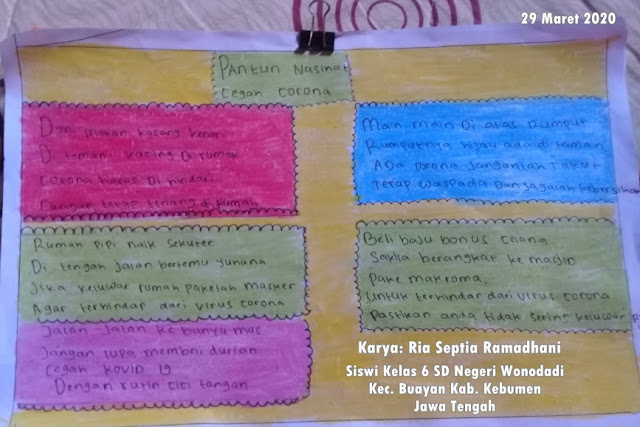 29 Maret 2020
PANTUN Nasihat
cegah corona
Doni makan kacang kenari
Di temani kucing Di rumah
corona harus Di hindari
Dengan tetap tenang di rumah
Main-main Di atas Rumput
Rumputnya hijau ada di taman
ADa corona janganlah Takut
Tetap waspada Dan jagalah kebersihan
Rumah pipi naik sekuter
Di tengah jalan bertemu yunana
Jika keluwar rumah pakelah masker
Agar terhindap dari virus corona
Beli baju bonus celana
Sakila berangkat ke masjid
Pake makroma.
Untuk terhindar dari virus corona
Pastikan anda tidak sering keluwar
Jalan Jalan ke banyu mas
Jangan lupa membeli durian
cegah kovid 19
Dengan rutin cici tangan
Karya: Ria Septia Ramadhani
Siswi Kelas 6 SD Negeri Wonodadi
Kec. Buayan Kab. Kebumen
Jawa Tengah